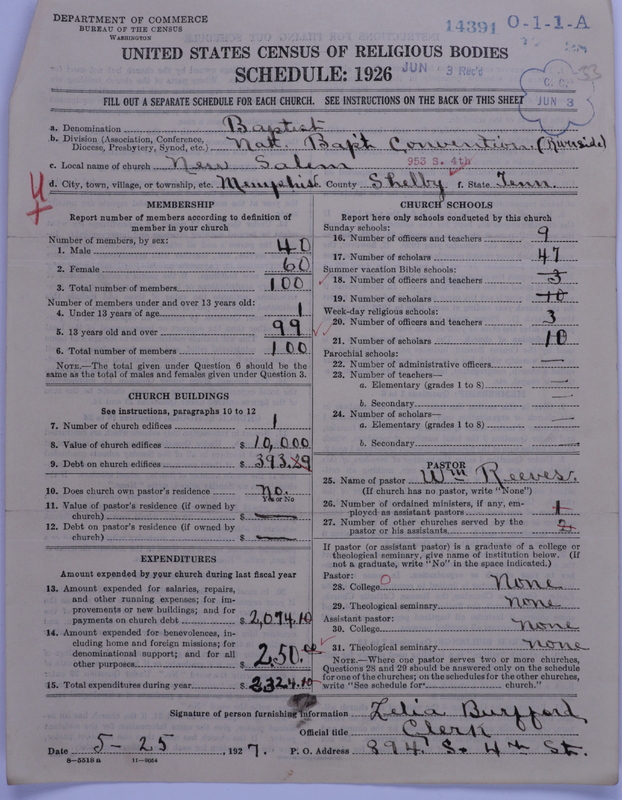 DEPARTMENT OF COMMERCE
BUREAU OF THE CENSUS
WASHINGTON
14391 O-1-1-A
UNITED STATES CENSUS OF RELIGIOUS BODIES
SCHEDULE: 1926
JUN 3 Rec'd
C. C.
JUN 3
33
FILL OUT A SEPARATE SCHEDULE FOR EACH CHURCH. SEE INSTRUCTIONS ON THE BACK OF THIS SHEET
a. Denomination Baptist
b. Division (Association, Conference, Diocese, Presbytery, Synod, etc.) Natl. Bapt Convention. (Riverside)
c. Local name of church New Salem 953 S. 4th
d. City, town, village, or township, etc. Memphis. County Shelby f. State Tenn.
MEMBERSHIP
Report number of members according to definition of
member in your church
Number of members, by sex:
1. Male 40
2. Female 60
3. Total number of members 100
Number of members under and over 13 years old:
4. Under 13 years of age 1
5. 13 years old and over 99
6. Total number of members 100
NOTE.—The total given under Question 6 should be the
same as the total of males and females given under Question 3.
CHURCH BUILDINGS
See instructions, paragraphs 10 to 12
7. Number of church edifices 1
8. Value of church edifices $ 10,000
9. Debt on church edifices $ 393.29
10. Does church own pastor's residence No.
Yes or No
11. Value of pastor's residence (if owned by
church) $ —
12. Debt on pastor's residence (if owned by
church) $ —
EXPENDITURES
Amount expended by your church during last fiscal year
13. Amount expended for salaries, repairs,
and other running expenses; for im-
provements or new buildings; and for
payments on church debt $ 2,074.10
14. Amount expended for benevolences, in-
cluding home and foreign missions; for
denominational support; and for all
other purposes $ 250.00
15. Total expenditures during year $ 2,324.10
CHURCH SCHOOLS
Report here only schools conducted by this church
Sunday schools:
16. Number of officers and teachers 9
17. Number of scholars 47
Summer vacation Bible schools:
18. Number of officers and teachers 3
19. Number of scholars 10
Week-day religious schools:
20. Number of officers and teachers 3
21. Number of scholars 10
Parochial schools:
22. Number of administrative officers —
23. Number of teachers—
a. Elementary (grades 1 to 8) —
b. Secondary —
24. Number of scholars—
a. Elementary (grades 1 to 8) —
b. Secondary —
PASTOR
25. Name of pastor Wm Reeves.
(If church has no pastor, write "None")
26. Number of ordained ministers, if any, em-
ployed as assistant pastors 1
27. Number of other churches served by the
pastor or his assistants 2
If pastor (or assistant pastor) is a graduate of a college or
theological seminary, give name of institution below. (If
not a graduate, write "No" in the space indicated.)
Pastor: O
28. College None
29. Theological seminary None
Assistant pastor:
30. College None
31. Theological seminary None
NOTE.—Where one pastor serves two or more churches,
Questions 28 and 29 should be answered only on the schedule
for one of the churches; on the schedules for the other churches,
write "See schedule for church."
Signature of person furnishing information Zelia Burfford
Official title Clerk
Date 5-25, 1927. P. O. Address 894 S. 4th St.
8—5518 a 11—9054